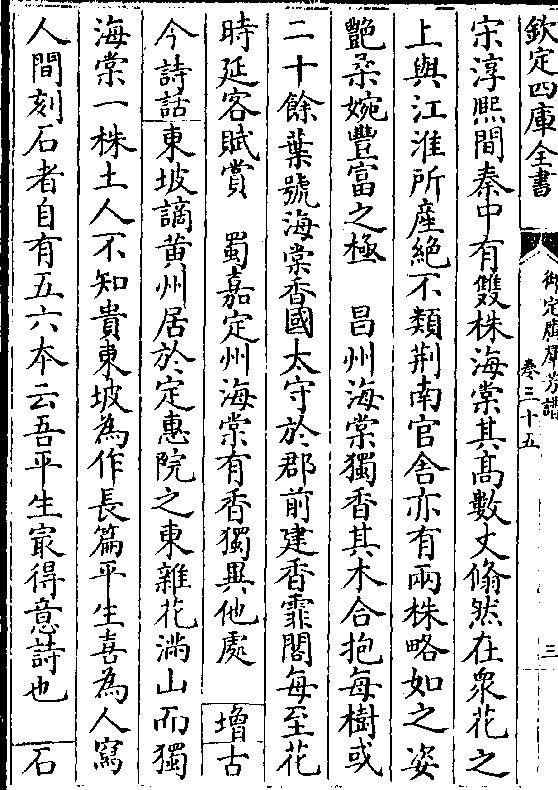 欽定四庫全書
御定廣羣芳譜
卷三十五
三
宋淳熙間秦中有雙株海棠其高數丈翛然在衆花之
上與江淮所産絶不類荆南官舍亦有兩株略如之姿
艶柔婉豐富之極　昌州海棠獨香其木合抱每樹或
二十餘葉號海棠香國太守於郡前建香霏閣每至花
時延客賦賞　蜀嘉定州海棠有香獨異他處　增古
今詩話東坡謫黄州居於定惠院之東雜花滿山而獨
海棠一株土人不知貴東坡為作長篇平生喜為人寫
人間刻石者自有五六本云吾平生㝡得意詩也　石